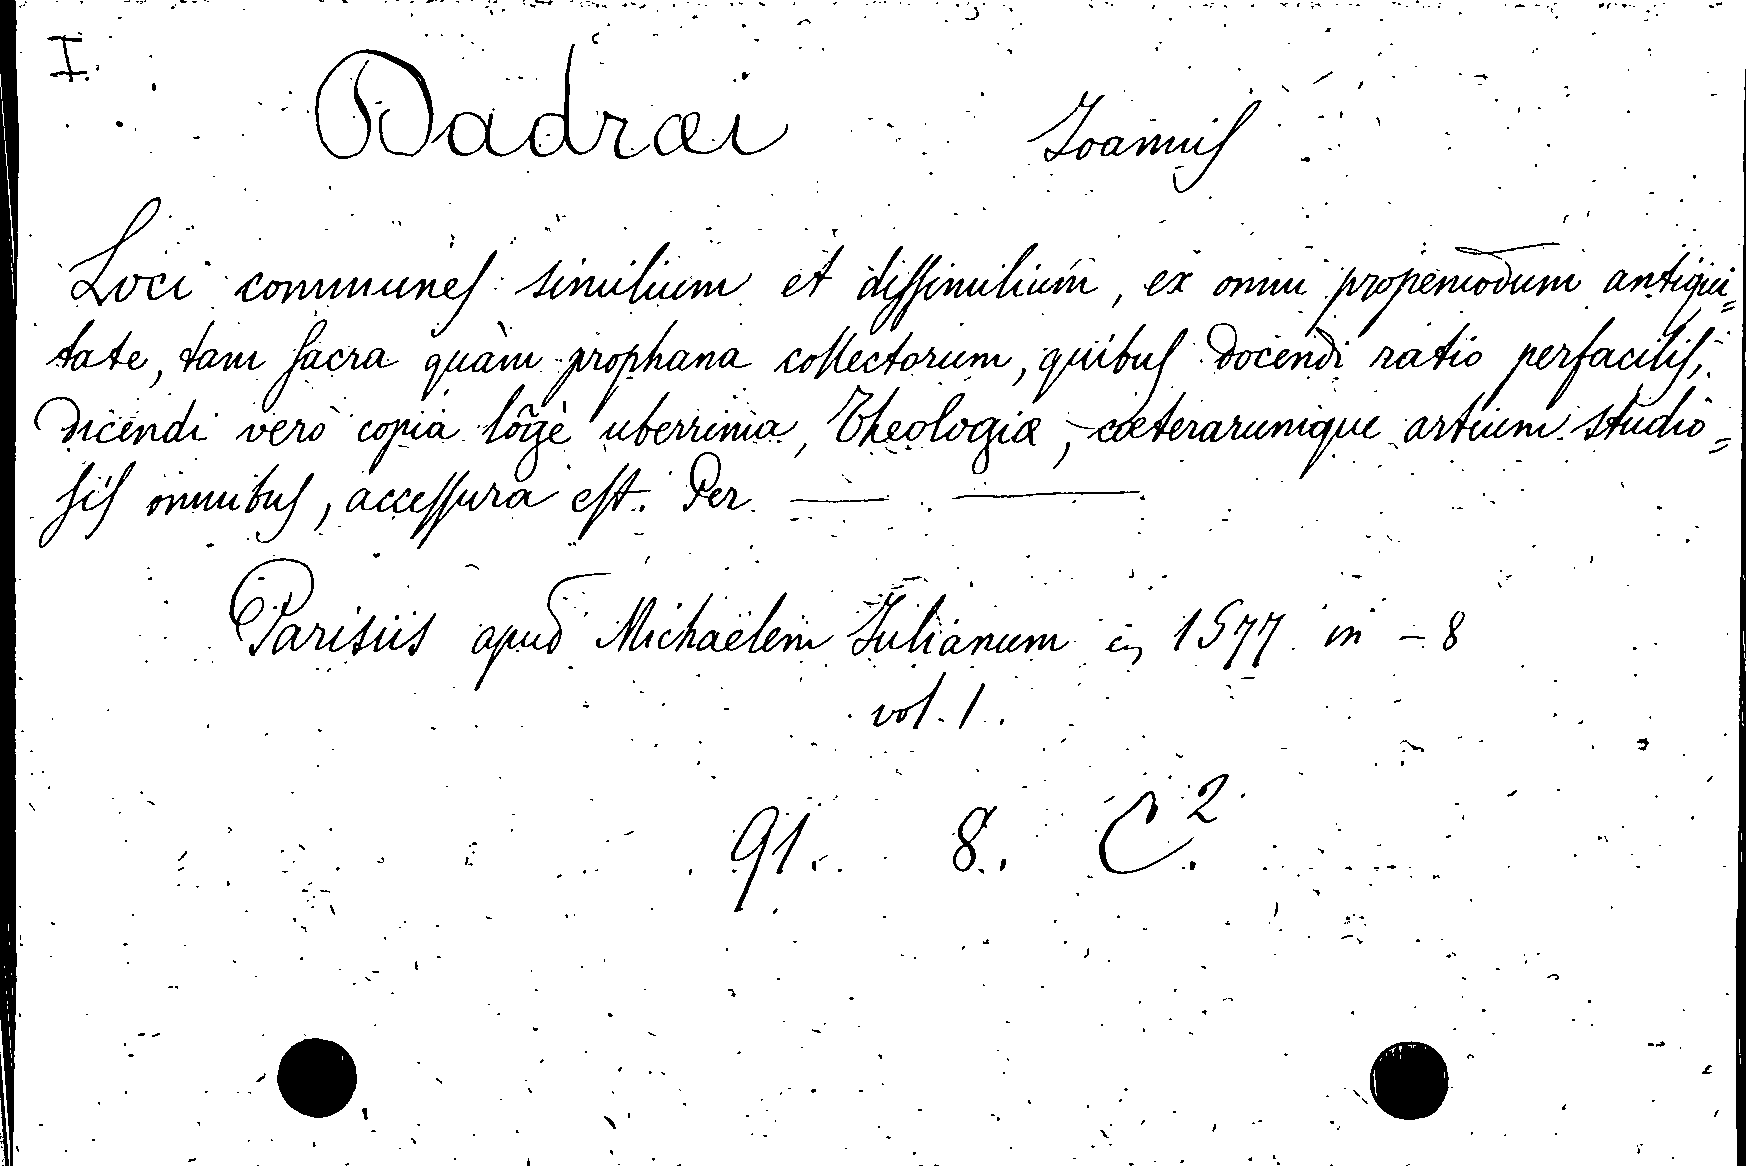 I.
Dadræi Joannis
Loci communes similium et dissimilium, ex omni propemodum antiqui=
tate, tam sacra quàm prophana collectorum, quibus docendi ratio perfacilis,
dicendi verò copia lõgè uberrima, Theologiæ, cæterarumque artium studio=
sis omnibus, accessura est. Per — —
Parisiis apud Michaëlem Julianum 1577 in - 8
vol. 1.
91. 8. C².